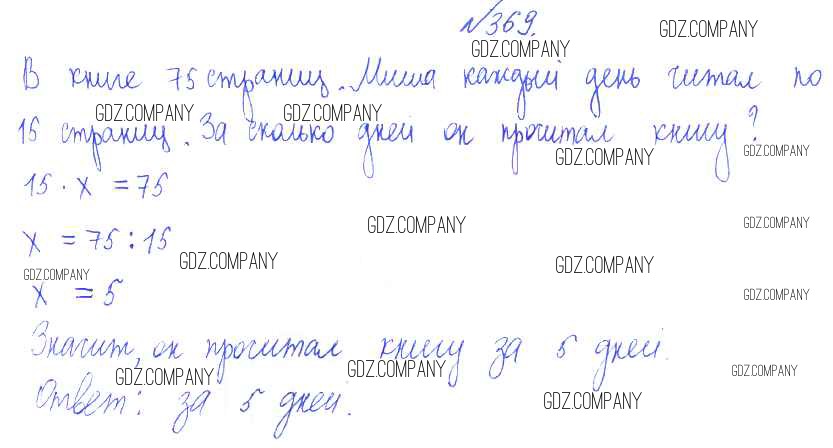 №369.
GDZ.COMPANY
GDZ.COMPANY
В книге 75 страниц. Миша каждый день читал по
GDZ.COMPANY GDZ.COMPANY
15 страниц. За сколько дней он прочитал книгу?
GDZ.COMPANY GDZ.COMPANY
15 · x = 75
GDZ.COMPANY GDZ.COMPANY
x = 75 : 15
GDZ.COMPANY GDZ.COMPANY
GDZ.COMPANY
x = 5
GDZ.COMPANY
Значит, он прочитал книгу за 5 дней.
GDZ.COMPANY GDZ.COMPANY GDZ.COMPANY
Ответ: за 5 дней.
GDZ.COMPANY